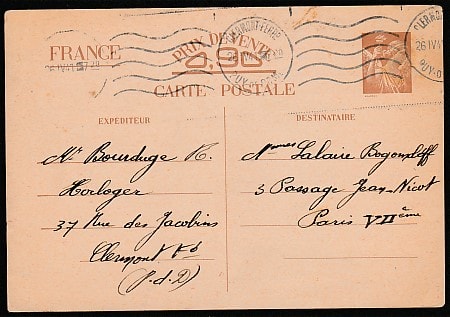 FRANCE
PRIX DE VENTE
0,90
CARTE POSTALE
CLERMONT-FERRAND
PUY-D
26 IV
EXPÉDITEUR
Mr Bourduge R.
Horloger
37 Rue des Jacobins
Clermont Fd
(P-d-D)
DESTINATAIRE
Lalaire
5 Passage Jean-Nicot
Paris VIIème